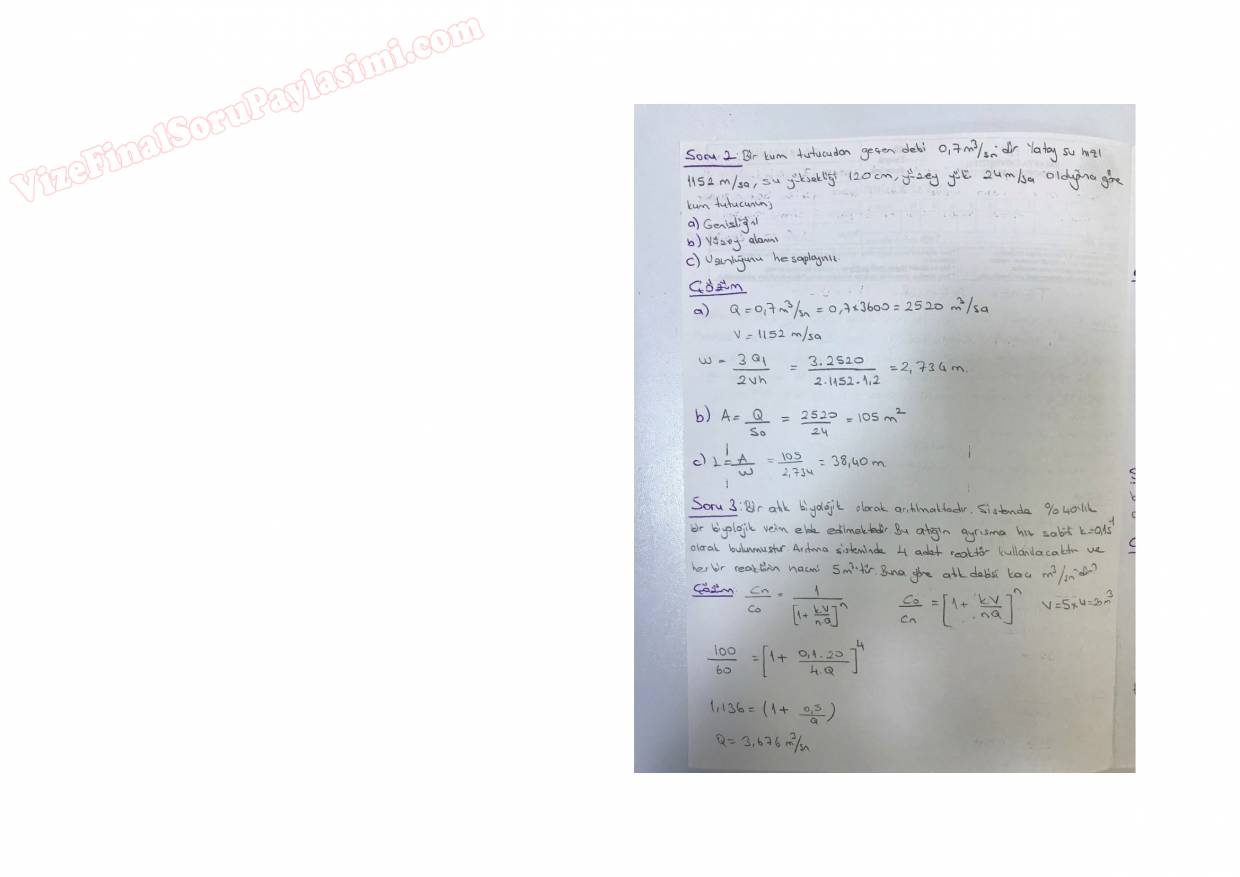 VizeFinalSoruPaylasimi.com
Soru 2: Bir kum tutucudan geçen debi 0,7 m³/sn'dir. Yatay su hızı
1152 m/sa, su yüksekliği 120 cm, yüzey yükü 24 m/sa olduğuna göre
kum tutucunun;
a) Genişliğini
b) Yüzey alanını
c) Uzunluğunu hesaplayınız.
Çözüm
a) Q = 0,7 m³/sn = 0,7×3600 = 2520 m³/sa
V = 1152 m/sa
W = 3Q1/2Vh = 3.2520/2.1152.1,2 = 2,734 m.
b) A = Q/So = 2520/24 = 105 m²
c) L = A/W = 105/2,734 = 38,40 m
Soru 3: Bir atık biyolojik olarak arıtılmaktadır. Sistemde %40'lık
bir biyolojik verim elde edilmektedir. Bu atığın ayrışma hız sabiti k=0,1s⁻¹
olarak bulunmuştur. Arıtma sisteminde 4 adet reaktör kullanılacaktır ve
her bir reaktörün hacmi 5m³'tür. Buna göre atık debisi kaç m³/sn'dir?
Çözüm: Cn/Co = 1/[1+kV/nQ]ⁿ Co/Cn = [1+kV/nQ]ⁿ V=5×4=20m³
100/60 = [1+ 0,1.20/4.Q]⁴
1,136 = (1+ 0,5/Q)
Q = 3,676 m³/sn